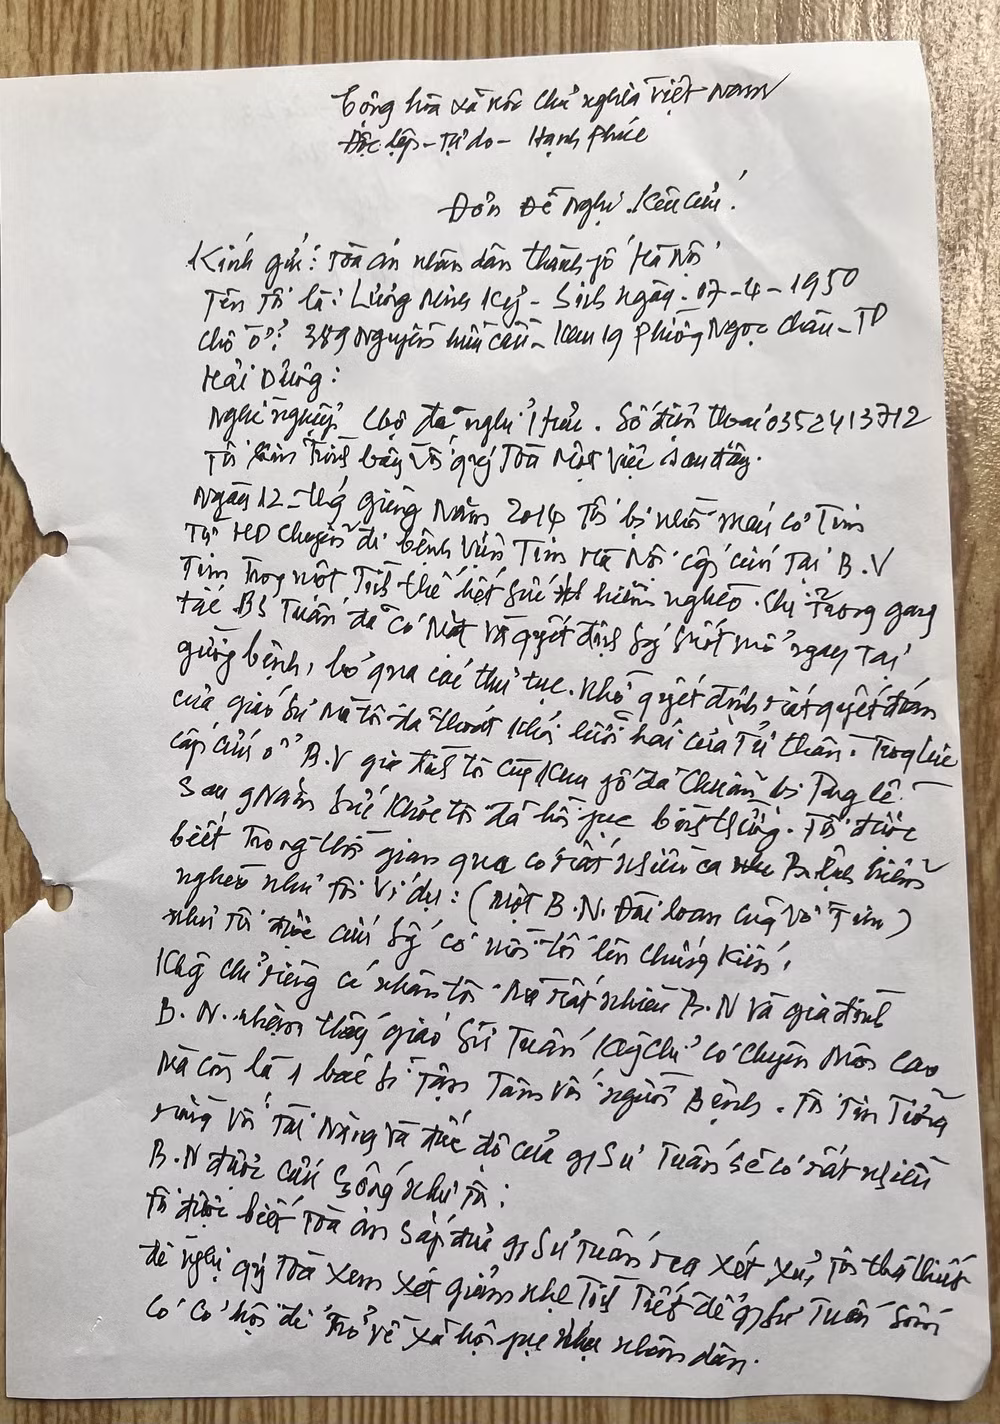 Cộng hòa xã hội chủ nghĩa Việt Nam
Độc lập - Tự do - Hạnh phúc
Đơn Đề Nghị Kêu Cứu.
Kính gửi: Tòa án nhân dân thành phố Hà Nội
Tên Tôi là: Lương Minh Ký - Sinh ngày. 07-4-1950
Chỗ ở: 389 Nguyễn hữu cầu - Khu 19 Phường Ngọc Châu - TP
Hải Dương:
Nghề nghiệp Cbộ đã nghỉ Hưu. Số điện thoại 0352413712
Tôi xin Trình bày với quý Tòa Một Việc sau đây.
Ngày 12 - thg giêng Năm 2014 Tôi bị nhồi máu cơ Tim
Từ HD chuyển đi bệnh viện Tim Hà Nội cấp cứu Tại B.V
Tim Trong một Tình thế hết sức hiểm nghèo. Chỉ Trong gang
tấc BS Tuấn đã có Mặt và quyết định mổ ngay Tại
giường bệnh, bỏ qua các thủ tục. Nhờ quyết định rất quyết đoán
của giáo sư Mà tôi đã thoát khỏi lưỡi hái của Tử thần. Trong lúc
cấp cứu ở B.V gia đình tôi đã chuẩn bị Tang lễ.
Sau 9 Năm sức khỏe tôi đã hồi phục bình thường. Tôi được
biết Trong thời gian qua có rất nhiều ca hiểm
nghèo như tôi Ví dụ: (một B.N. Đài loan cũng Vỡ Tim)
như tôi được cứu sống có mời tôi lên chứng kiến.
Không chỉ riêng cá nhân tôi Mà rất nhiều B.N và gia đình
B.N. nhận thấy giáo Sư Tuấn không chỉ có chuyên Môn cao
Mà còn là 1 bác sĩ Tận Tâm với người Bệnh. Tôi Tin Tưởng
rằng Với Tài Năng và đức độ của g/Sư Tuấn sẽ có rất nhiều
B.N được cứu Sống như Tôi:
Tôi được biết Tòa án Sắp đưa g/Sư Tuấn ra xét xử, Tôi tha thiết
đề nghị quý Tòa xem xét giảm nhẹ Tình Tiết để g/sư Tuấn Sớm
có cơ hội để Trở về xã hội phục vụ nhân dân.